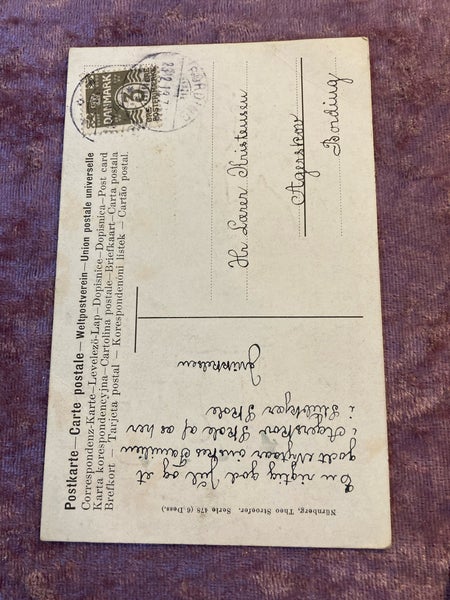 Postkarte — Carte postale — Weltpostverein — Union postale universelle
Correspondenz-Karte — Levelező-Lap — Dopisnice — Dopisnica — Post card
Karta korespondencyjna — Cartolina postale — Briefkaart — Carta postala
Brefkort — Tarjeta postal — Korespondenční lístek — Cartão postal.
DANMARK
3
Hr Lærer Kristensen
Agerskov
Bording
En rigtig god Jul og et
godt Nytaar ønskes Familien
i Agerskov Skole af os her
i Skole
Nürnberg, Theo Stroefer. Serie 478 (6 Dess.)